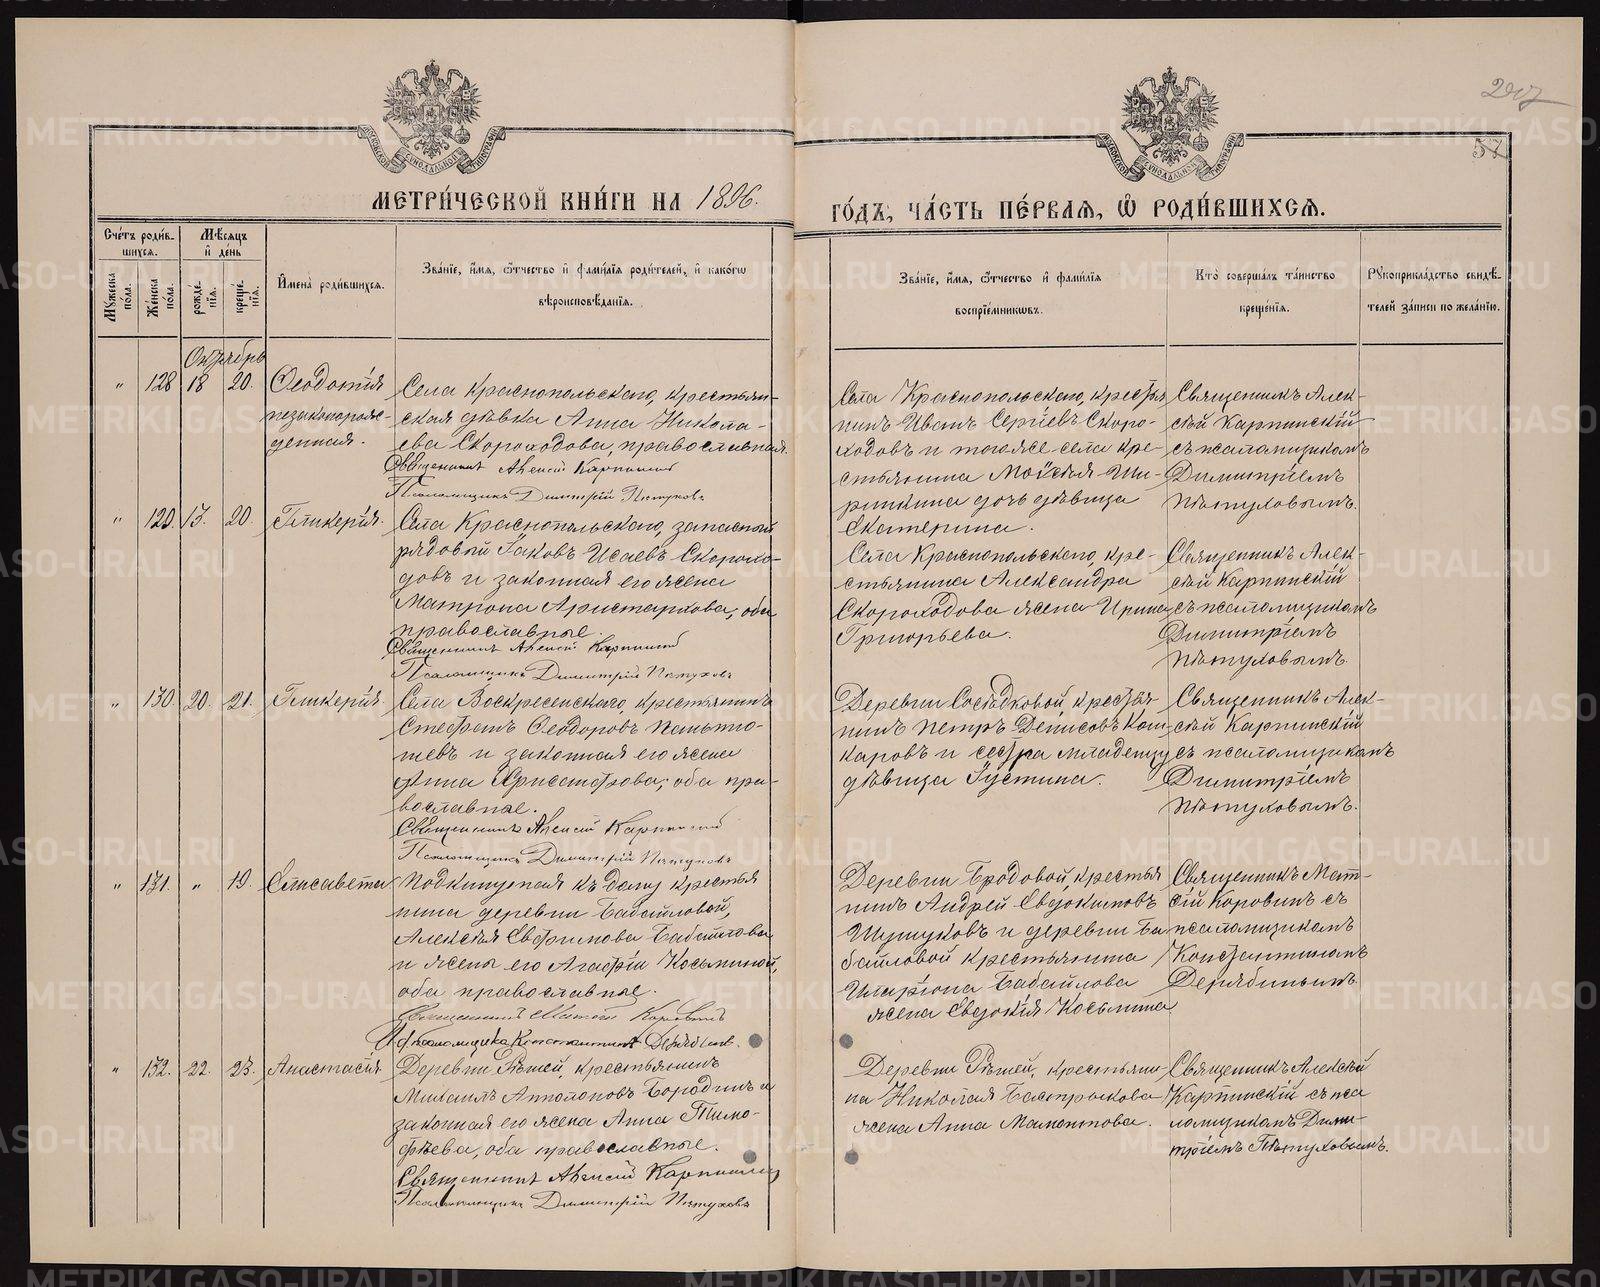 МЕТРИ́ЧЕСКОЙ КНИ́ГИ НА 1896.
ГО́ДЪ, ЧА́СТЬ ПЕ́РВАЯ, Ѿ РОДИ́ВШИХСЯ.
57
Сче́тъ роди́в-
шихся.
Мѣсяцъ
и де́нь
Мꙋ́жеска по́ла.
Же́нска по́ла.
рожде́нїя.
креще́нїя.
Имена̀ роди́вшихся.
Зва́нїе, и́мя, ѻ́тчество и фами́лїя роди́телей, и како́гѡ
вѣроисповѣ́данїя.
Зва́нїе, и́мя, ѻ́тчество и фами́лїя
воспрїе́мникѡвъ.
Кто̀ соверша́лъ та́инство
креще́нїя.
Рꙋкоприкла́дство свидѣ́-
телей за́писи по жела́нїю.
Октябрь
" 128 18 20. Ѳеодотія
незаконорож-
денная.
Села Краснопольскаго, крестьян-
ская дѣвка Анна Никола-
ева Скороходова, православная.
Священникъ Алексій Карпинскій
Псаломщикъ Димитрій Пѣтуховъ
Села Краснопольскаго, крестья
нинъ Иванъ Сергіевъ Скоро-
ходовъ и тогоже села кре-
стьянина Моѵсея Ши-
ринкина дочь дѣвица
Екатерина.
Священникъ Алек-
сѣй Карпинскій
съ псаломщикомъ
Димитріемъ
Пѣтуховымъ.
" 129 13. 20. Гликерія.
Села Краснопольскаго, запасный
рядовый Іаковъ Исаевъ Скорохо-
довъ и законная его жена
Матрона Аристархова, оба
православные.
Священникъ Алексій Карпинскій
Псаломщикъ Димитрій Пѣтуховъ
Села Краснопольскаго, кре-
стьянина Александра
Скороходова жена Ирина
Григорьева.
Священникъ Алек-
сѣй Карпинскій
съ псаломщикомъ
Димитріемъ
Пѣтуховымъ.
" 130. 20. 21. Гликерія.
Села Воскресенскаго, крестьянинъ
Стефанъ Ѳеодоровъ Паньтю-
шевъ и законная его жена
Анна Христофорова; оба пра-
вославные.
Священникъ Алексій Карпинскій
Псаломщикъ Димитрій Пѣтуховъ
Деревни Сосѣдковой, крестья
нинъ Петръ Денисовъ Кош-
каровъ и сестра младенцу
дѣвица Іустина.
Священникъ Алек-
сѣй Карпинскій
съ псаломщикомъ
Димитріемъ
Пѣтуховымъ.
" 131. " 19. Елисавета
Подкинутая къ дому крестья
нина деревни Бабаиловой,
Алексѣя Евфимова Бабаилова
и жены его Агафіи Косьминой,
оба православные.
Священникъ Матѳій Коровинъ
И. д. псаломщика Константинъ Дерябинъ.
Деревни Бродовой, крестья
нинъ Андрей Евдокимовъ
Шушуковъ и деревни Ба
баиловой крестьянина
Иларіона Бабаилова
жена Евдокія Косьмина
Священникъ Мат-
ѳій Коровинъ съ
псаломщикомъ
Константиномъ
Дерябинымъ.
" 132. 22. 23. Анастасія
Деревни Рѣшей, крестьянинъ
Михаилъ Апполоновъ Бородинъ и
законная его жена Анна Тимо-
фѣева, оба православные.
Священникъ Алексій Карпинскій
Псаломщикъ Димитрій Пѣтуховъ
Деревни Рѣшей, крестьяни
на Николая Бастрыкова
жена Анна Мамонтова.
Священникъ Алексѣй
Карпинскій съ пса
ломщикомъ Дими-
тріемъ Пѣтуховымъ.
METRIKI.GASO-URAL.RU